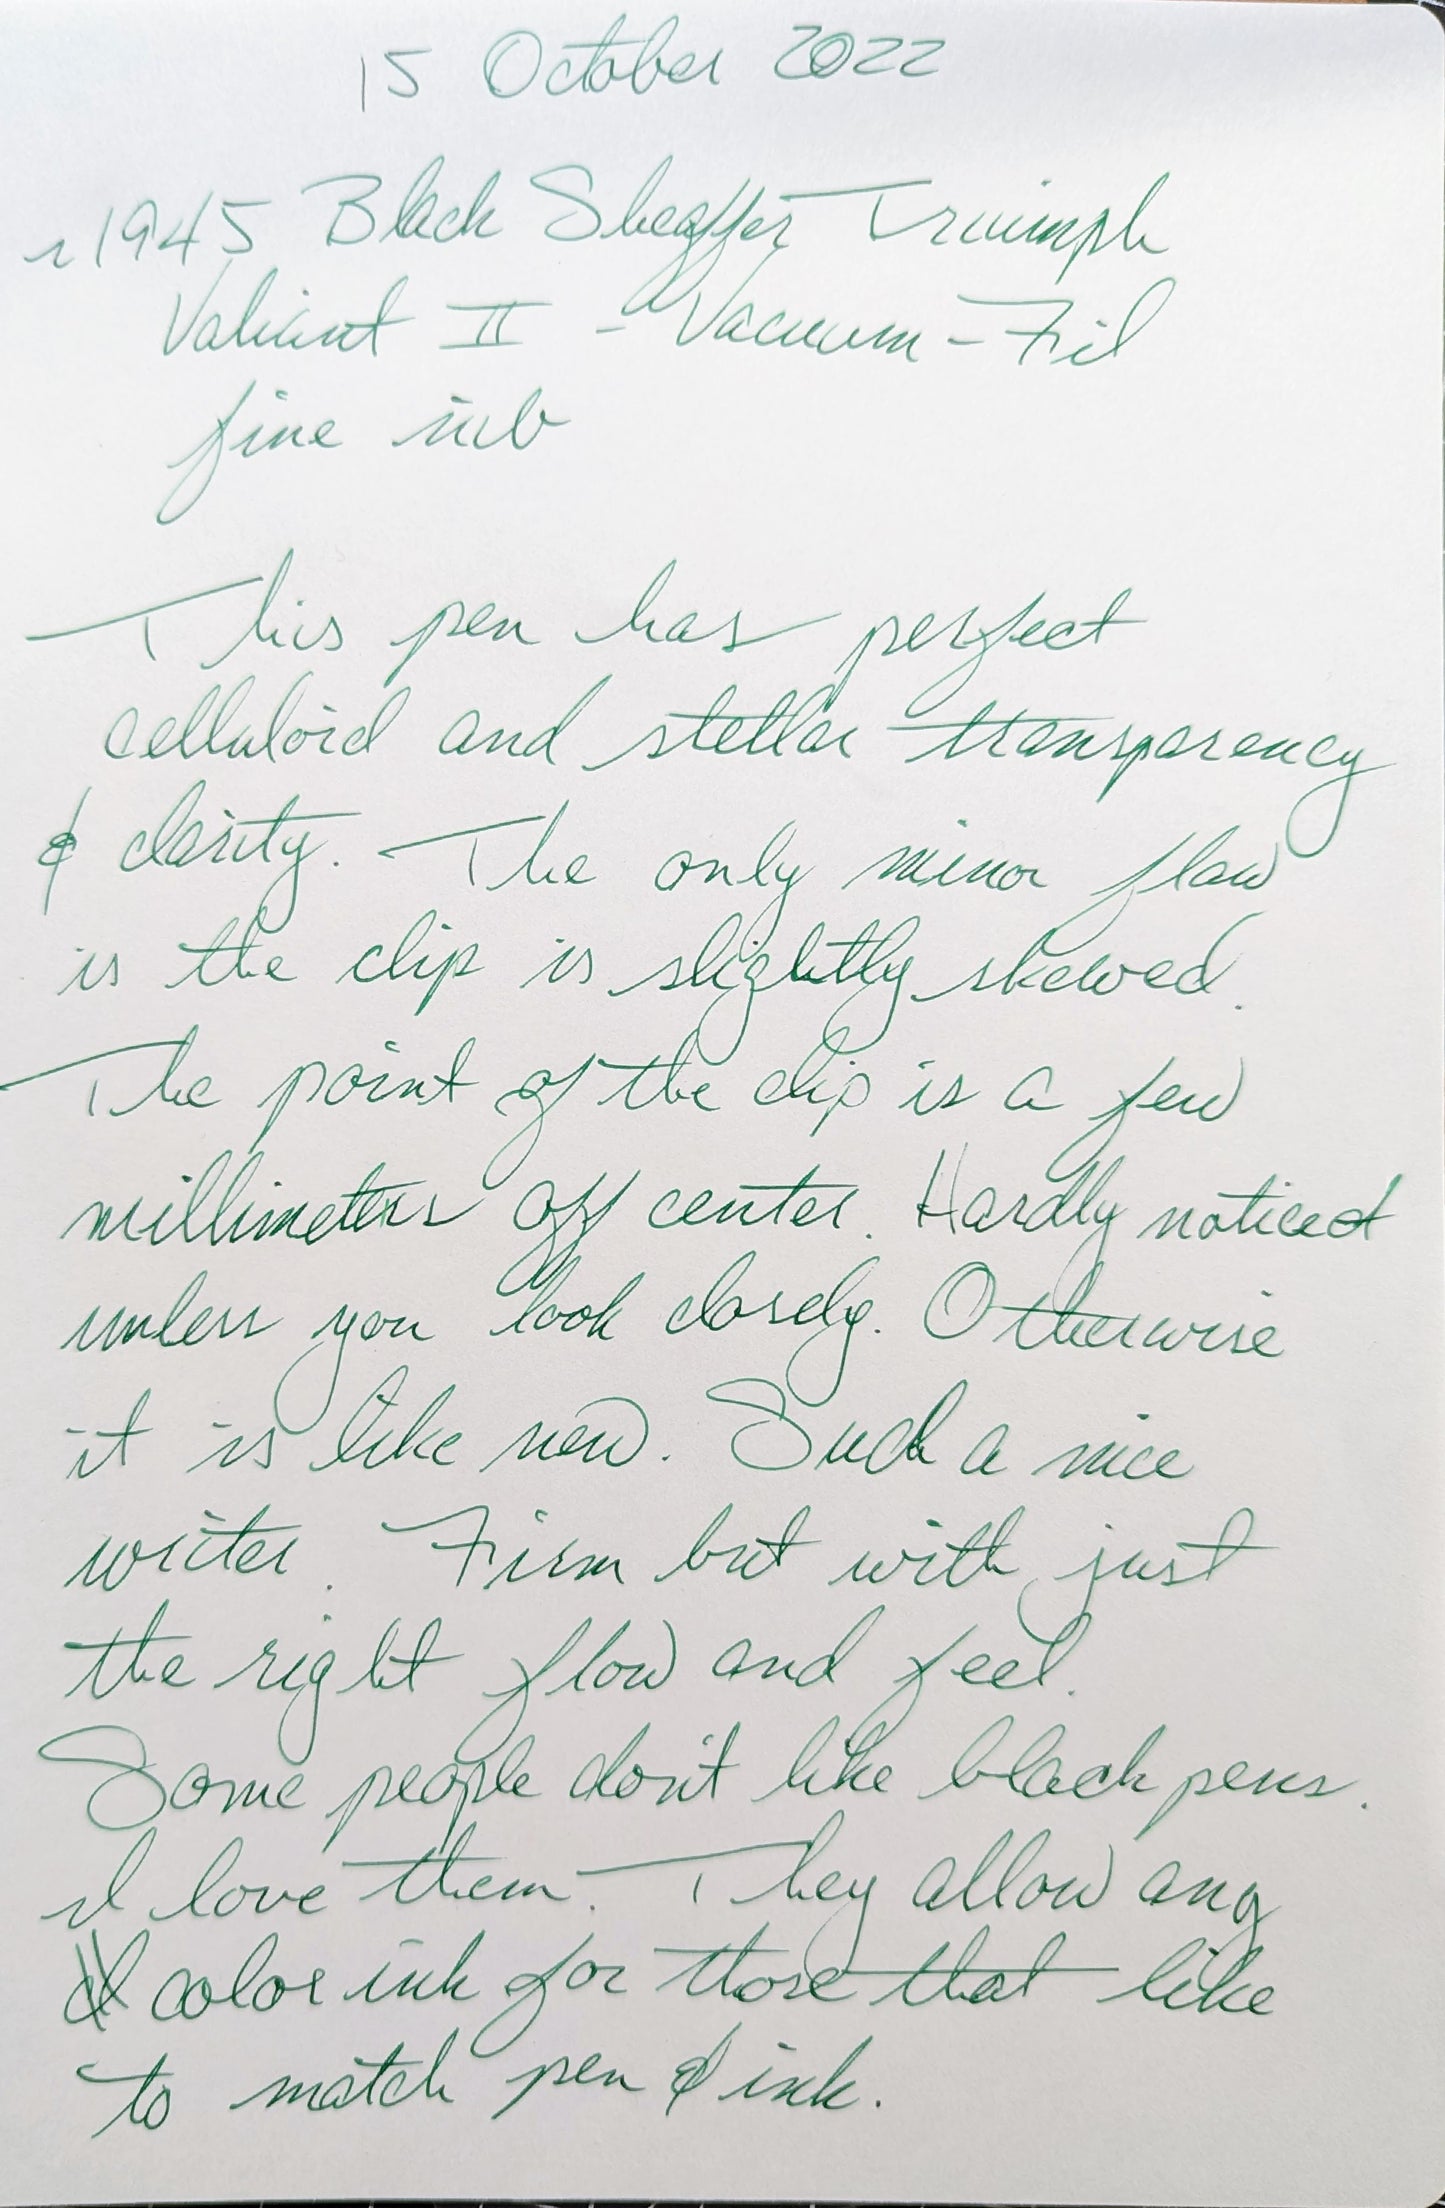 15 October 2022
~1945 Black Sheaffer Triumph
Valiant II - Vacuum-Fil
fine nib
This pen has perfect
celluloid and stellar transparency
& clarity. The only minor flaw
is the clip is slightly skewed.
The point of the clip is a few
millimeters off center. Hardly noticed
unless you look closely. Otherwise
it is like new. Such a nice
writer. Firm but with just
the right flow and feel.
Some people don't like black pens.
I love them. They allow any
color ink for those that like
to match pen & ink.